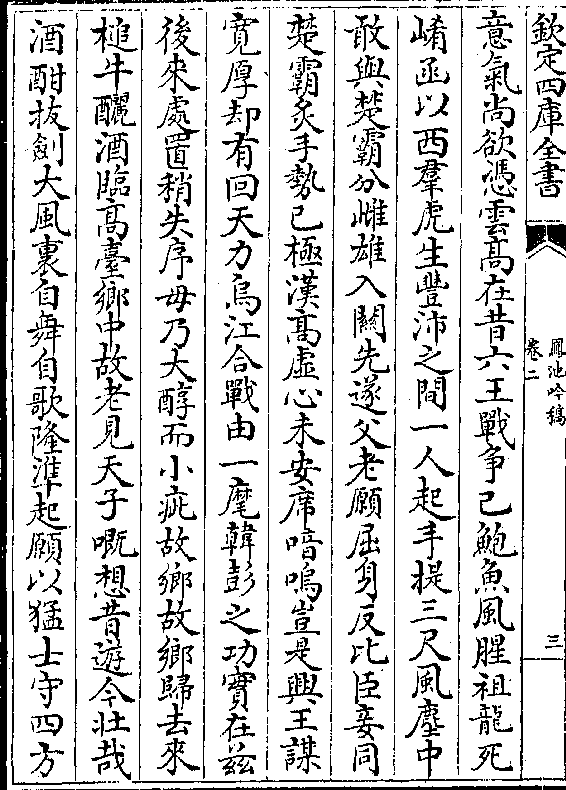 欽定四庫全書
鳳池吟稿
卷二
三
意氣尚欲憑雲高在昔六王戰争已鮑魚風腥祖龍死
崤函以西羣虎生豐沛之間一人起手提三尺風塵中
敢與楚霸分雌雄入關先遂父老願屈身反比臣妾同
楚霸炙手勢已極漢高虛心未安席喑嗚豈是興王謀
寛厚却有回天力烏江合戰由一麾韓彭之功實在兹
後來處置稍失序毋乃大醇而小疵故鄉故鄉歸去來
槌牛釃酒臨髙臺鄉中故老見天子嘅想昔遊今壯哉
酒酣拔劍大風裏自舞自歌隆準起願以猛士守四方